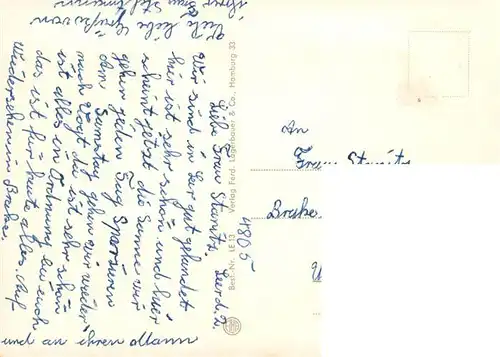 Liebe Frau Stanitz. Leer d. 2.
Wir sind in Leer gut gelandet
hier ist sehr schön und hier
scheint jetzt die Sonne wir
gehen jeden Tag Spazieren
den Samstag gehen wir wieder
nach Vogt da ist sehr schön
ist alles in Ordnung bei euch
das ist für heute alles. Auf
Wiedersehen in Brake.
Viele liebe Grüße von
Frau
und an ihren Mann
Best.-Nr. LE 13 Verlag Ferd. Lagerbauer & Co., Hamburg 33
An
Frau Stanitz
4805
Brake